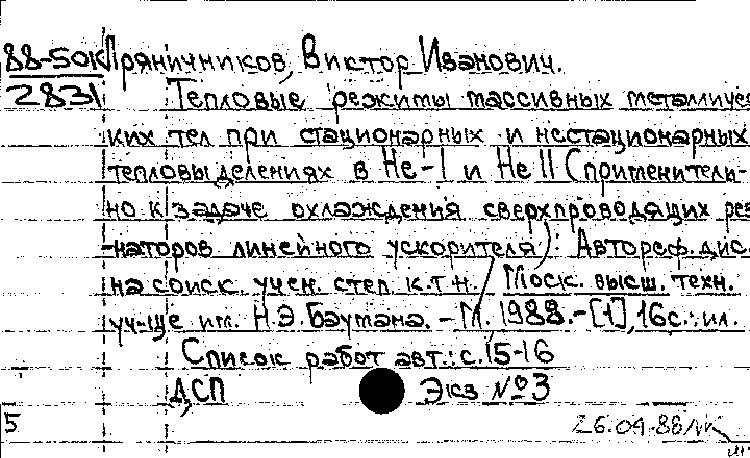 88-50к Пряничников, Виктор Иванович.
2831 Тепловые режимы массивных металличес
ких тел при стационарных и нестационарных
тепловыделениях в Не-I и Не II (применитель-
но к задаче охлаждения сверхпроводящих рез
-наторов линейного ускорителя): Автореф. дис.
на соиск. учен. степ. к.т.н. / Моск. высш. техн.
уч-ще им. Н.Э. Баумана. - М. 1988. - [1], 16с.: ил.
Список работ авт.: с. 15-16
ДСП Экз №3
5 26.04.88